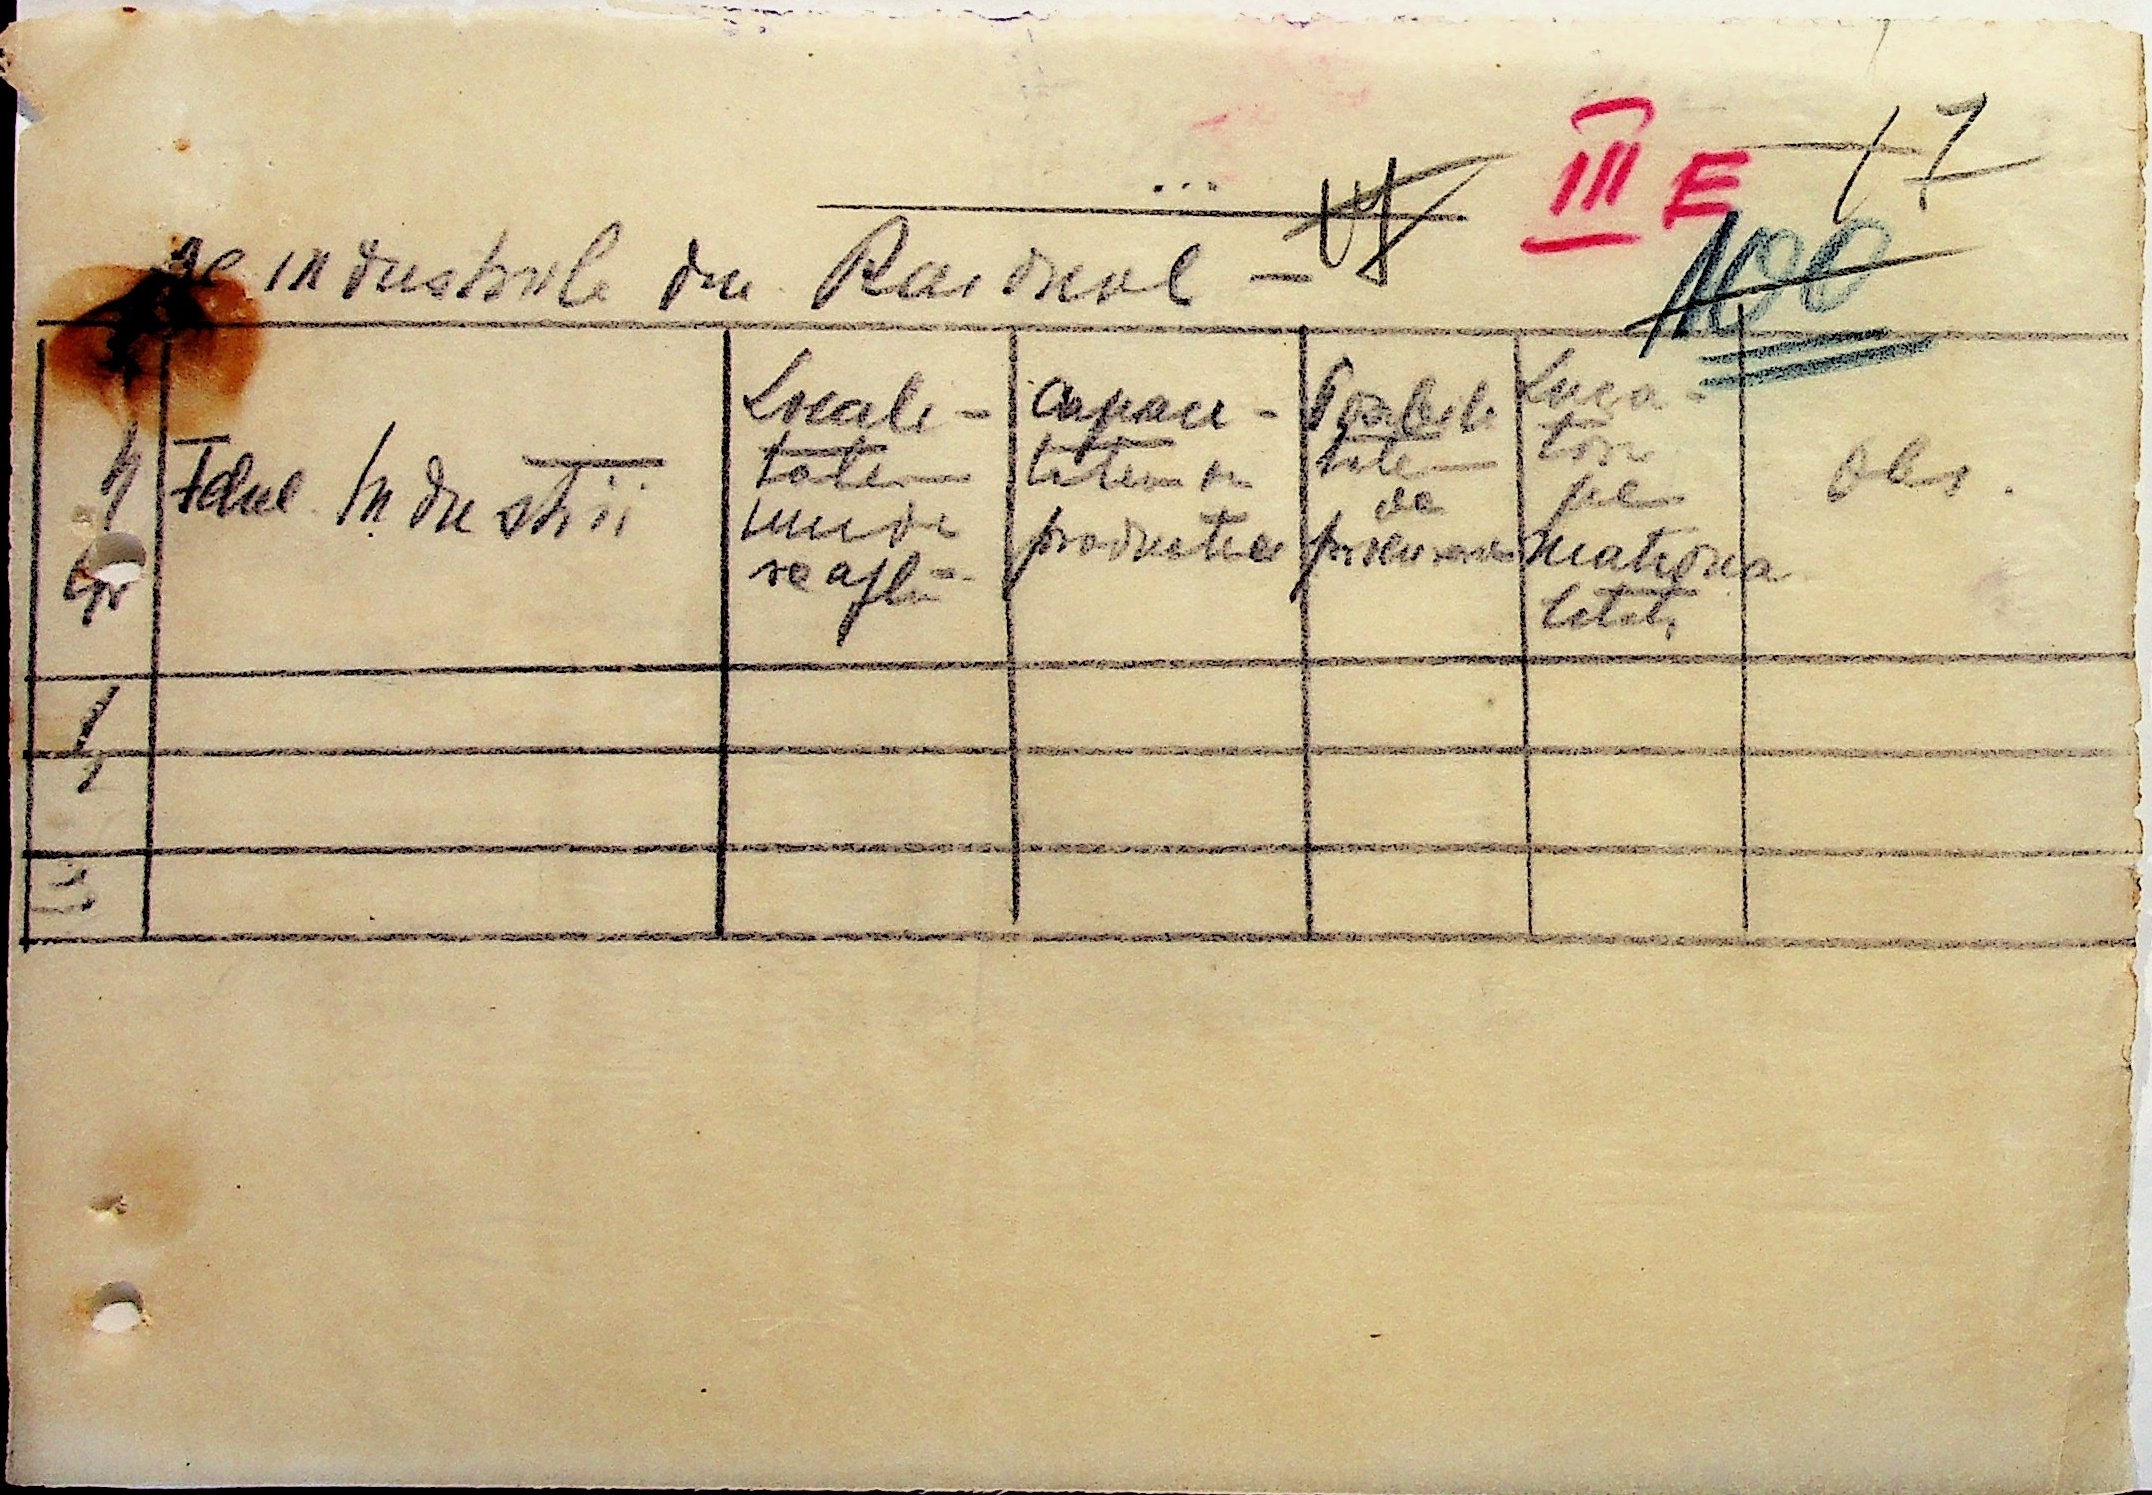 III E 17
100
de industriile din Raionul —
N
Felul Industrii
Locali-
tatea
unde
se află
Capaci-
tatea de
producție
Posibili
tate
de
prelucrare
Lucră-
tori
pe
Nationa
litati
Obs.